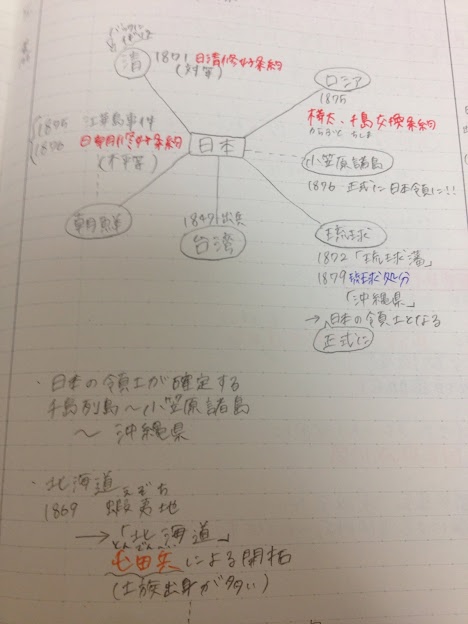 清
1871 日清修好条約
(対等)
ロシア
1875
樺太・千島交換条約
からふと ちしま
1875 江華島事件
1876 日朝修好条約
(不平等)
日本
小笠原諸島
1876 正式に日本領に!!
朝鮮
1847 出兵
台湾
琉球
1872「琉球藩」
1879 琉球処分
「沖縄県」
→日本の領土となる
正式に
・日本の領土が確定する
千島列島~小笠原諸島
~ 沖縄県
・北海道
えぞち
1869 蝦夷地
→「北海道」
とんでんへい
屯田兵による開拓
(士族出身が多い)